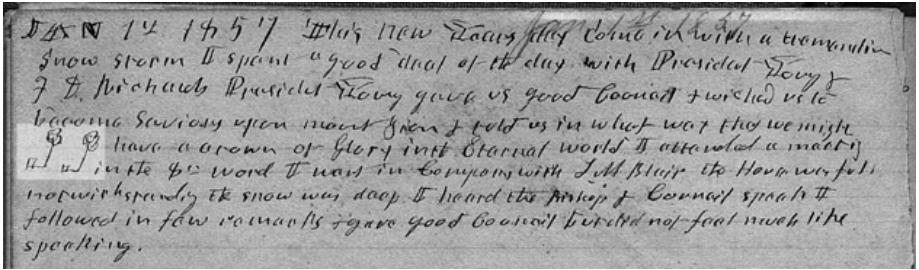 JAN 1st 1857 This New Years day Come in with a tremendius
Snow storm I spent a good deal of the day with Presidet Young &
F D. Richards Presidet Young gave us good Councel & wished us to
become Saviors upon mount Zion & told us in what way that we migh
have a crown of Glory in the Eternal world I attended a meeting
in the word I was in Company with S M Blair the House was full
notwithstandig the snow was deep I heard the Bishop & Council speak I
followed in few remarks & gave good Council but did not feel much like
speaking.